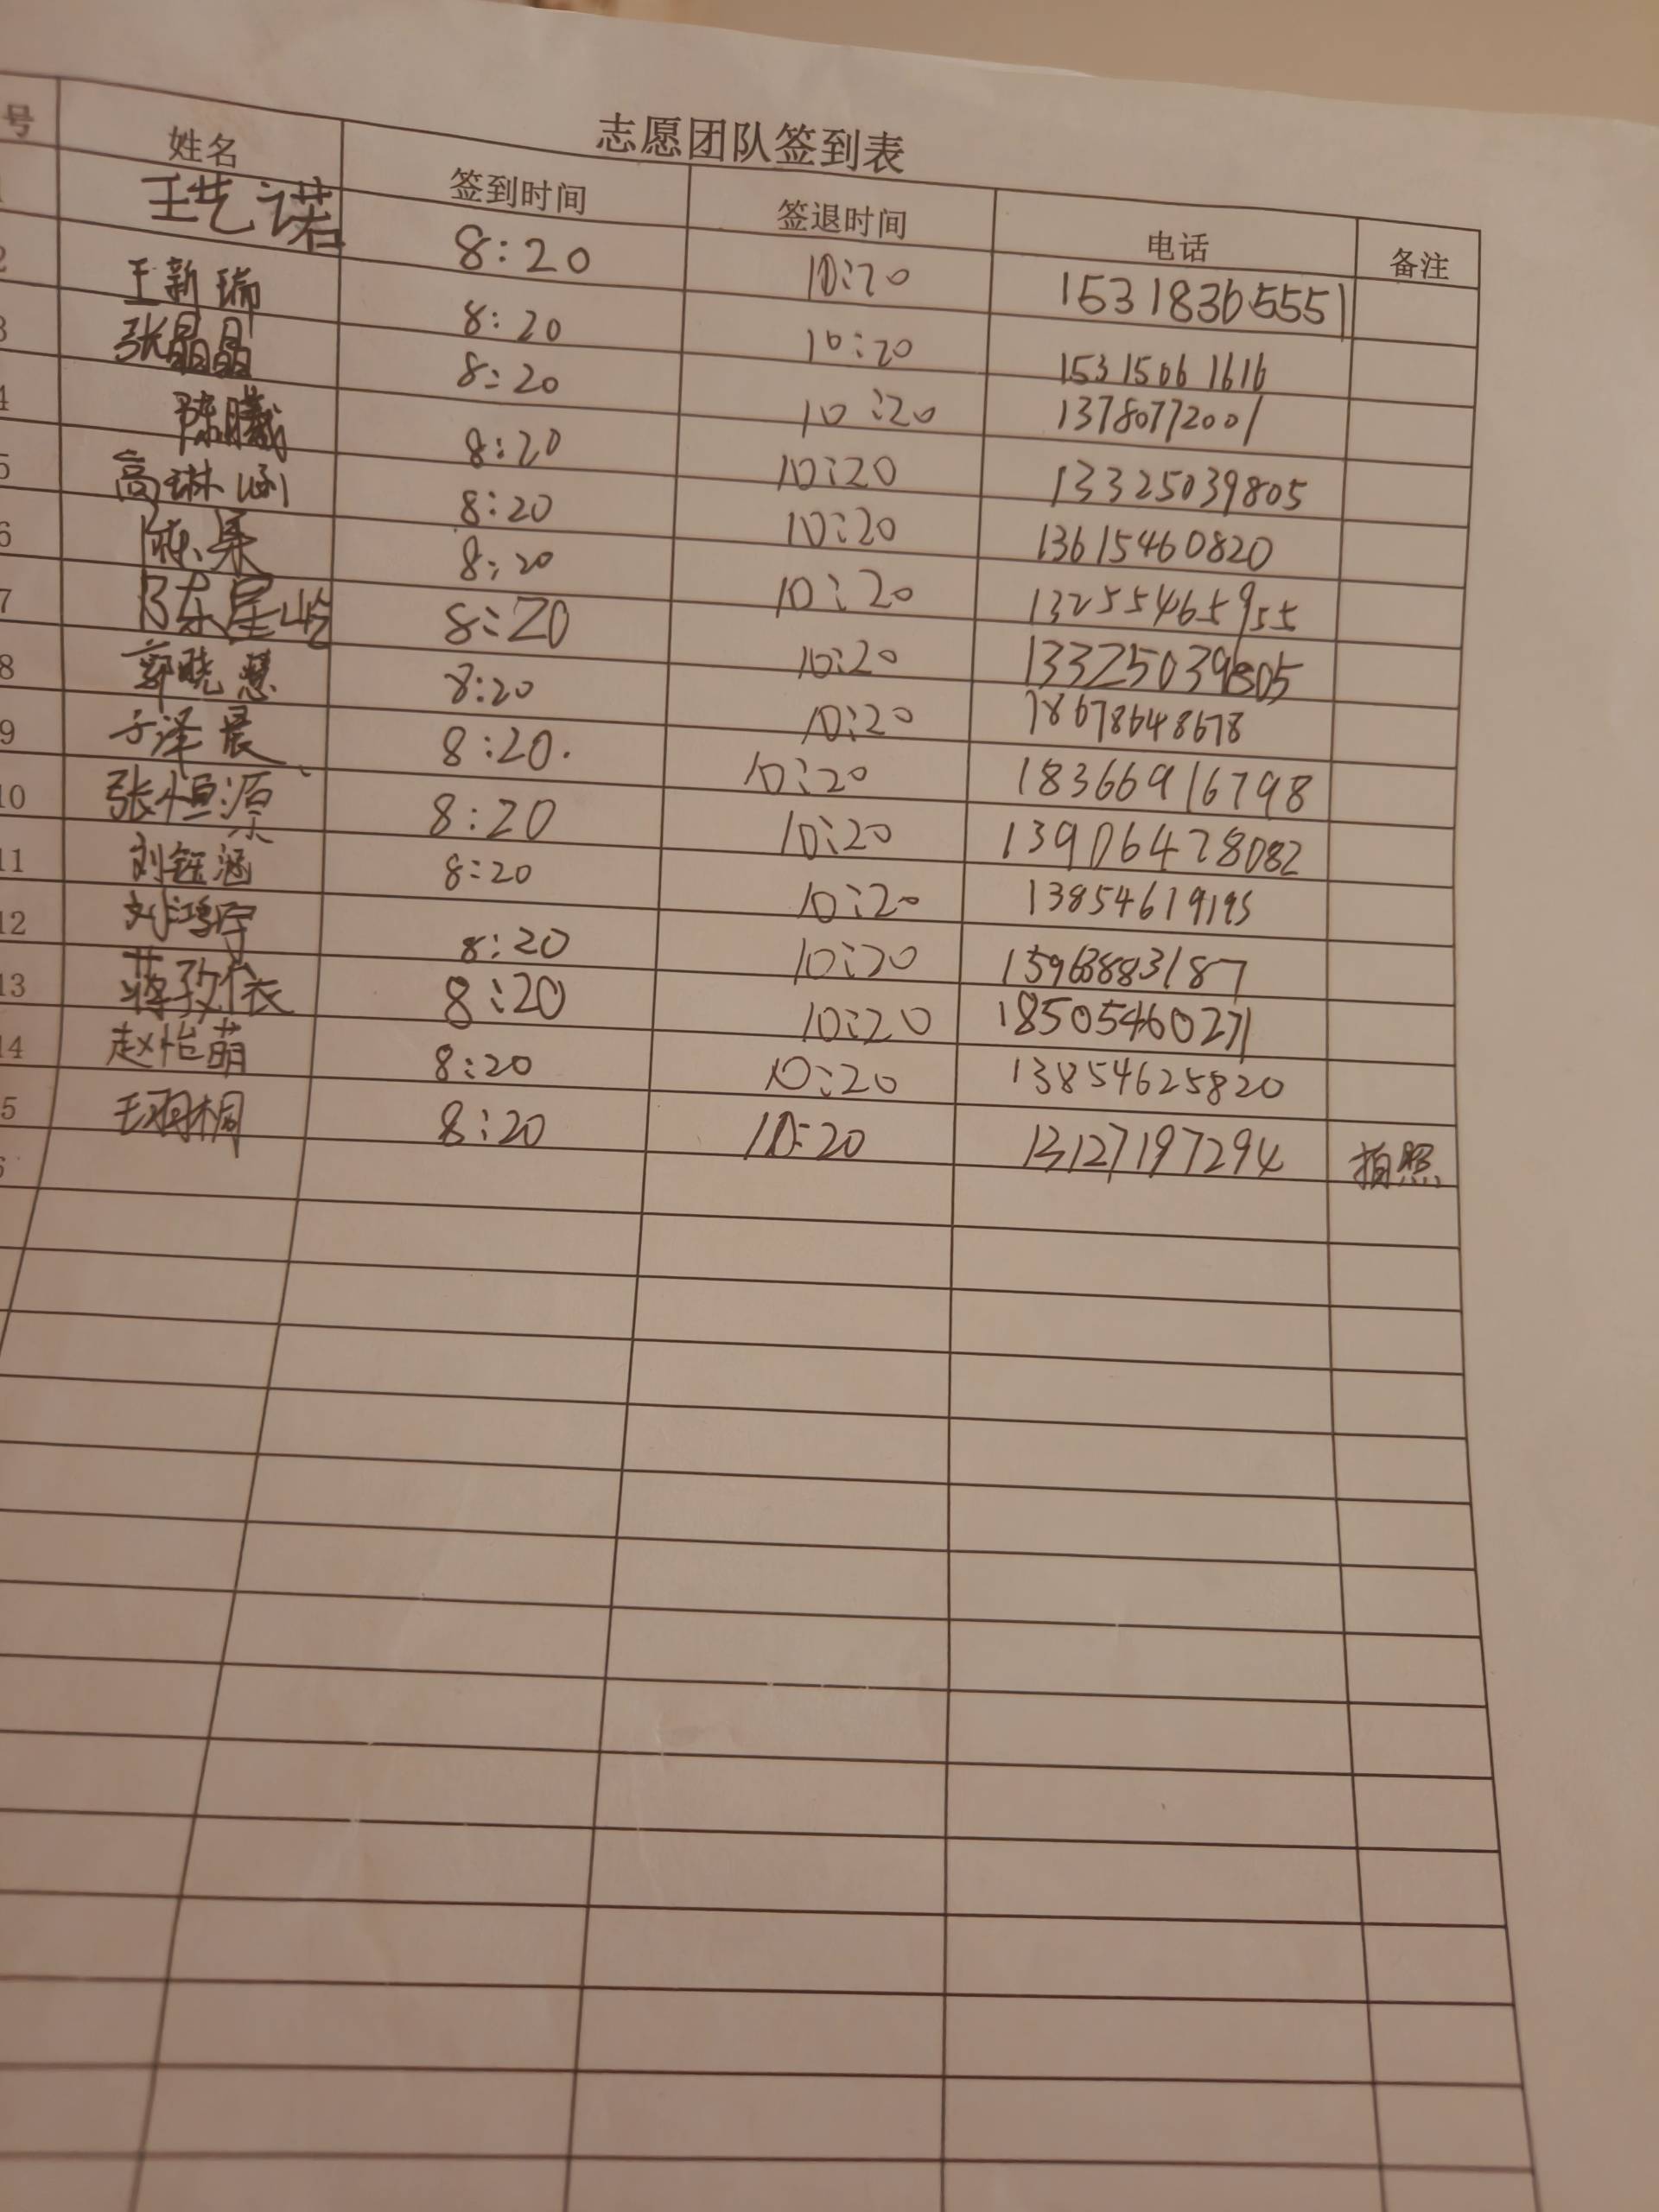 志愿团队签到表
号 姓名 签到时间 签退时间 电话 备注
1 王艺诺 8:20 10:20 15318365551
2 王新瑞 8:20 10:20 15315061616
3 张晶晶 8:20 10:20 13780772001
4 陈曦 8:20 10:20 13325039805
5 高琳涵 8:20 10:20 13615460820
6 8:20 10:20 13255465955
7 陈星屹 8:20 10:20 13325039805
8 郭晓慧 8:20 10:20 18678648678
9 于泽晨 8:20. 10:20 18366916798
10 张恒源 8:20 10:20 13906478082
11 刘钰涵 8:20 10:20 13854619195
12 刘鸿宇 8:20 10:20
13 蒋孜依 8:20 10:20 18505460271
14 赵怡萌 8:20 10:20 13854625820
5 王羽桐 8:20 10:20 13127197294 拍照
6